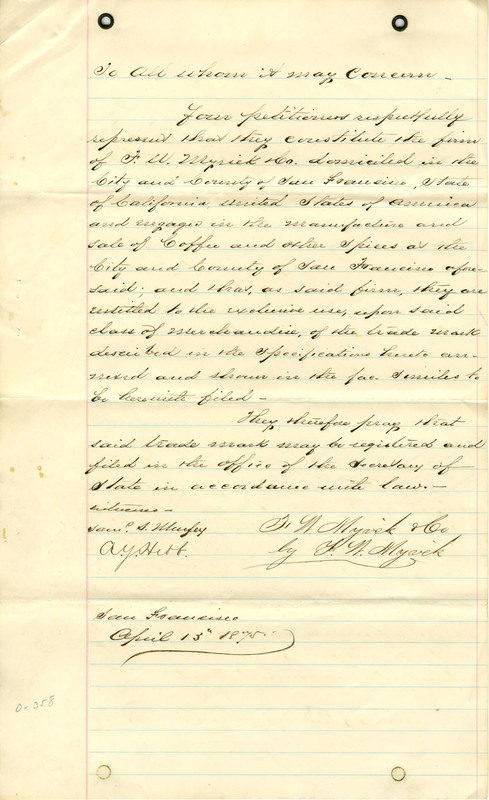 To All whom it may Concern -
Your petitioners respectfully
represent that they constitute the firm
of F. W. Myrick & Co. domiciled in the
City and County of San Francisco, State
of California United States of America
and engage in the manufacture and
sale of Coffee and other Spices at the
City and County of San Francisco afore-
said; and that, as said firm, they are
entitled to the exclusive use, upon said
class of merchandise, of the trade mark
described in the Specifications hereto an-
nexed and shown in the fac Similes to
be herewith filed -
They therefore pray that
said trade mark may be registered and
filed in the office of the Secretary of
State in accordance with law. -
witnesses -
Saml. S. Murfey
F. W. Myrick & Co
A. J. Hebb.
by F. W. Myrick
San Francisco
April 13th 1875
0-358